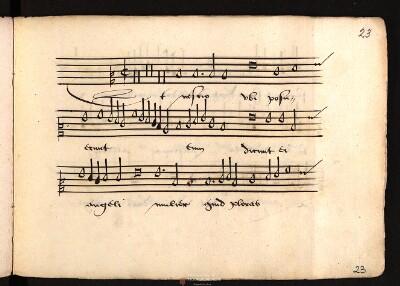 23
et nescio vbi posu
erunt eum dicunt ei
angeli mulier quid ploras
23